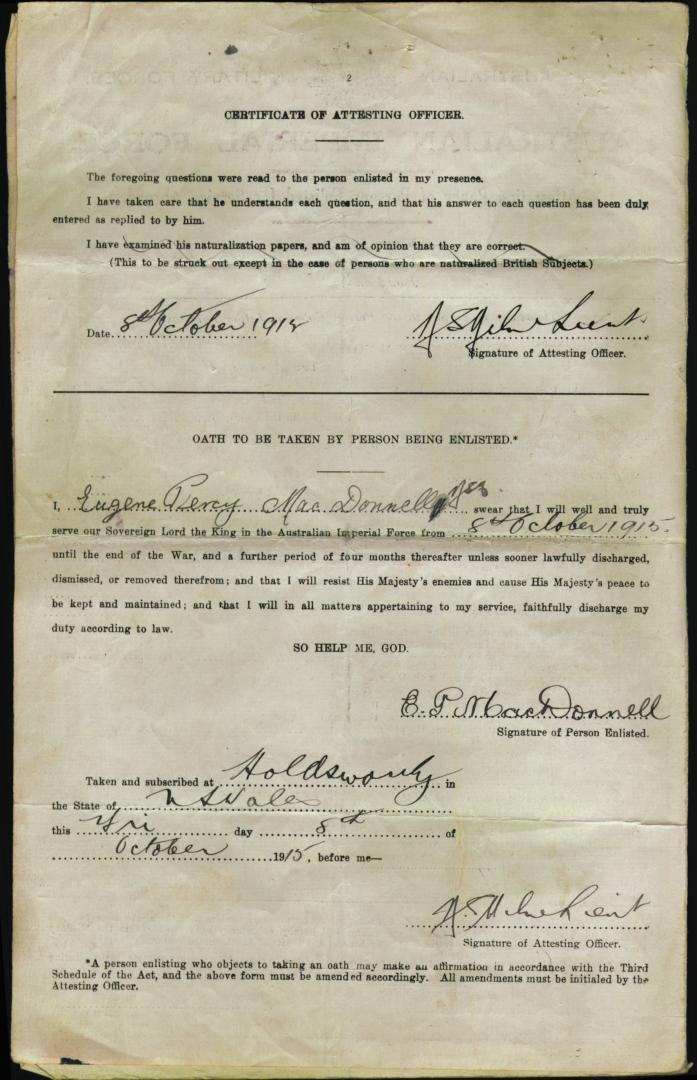 2
CERTIFICATE OF ATTESTING OFFICER.
The foregoing questions were read to the person enlisted in my presence.
I have taken care that he understands each question, and that his answer to each question has been duly
entered as replied to by him.
I have examined his naturalization papers, and am of opinion that they are correct.
(This to be struck out except in the case of persons who are naturalized British Subjects.)
Date 8th October 191
Lieut
Signature of Attesting Officer.
OATH TO BE TAKEN BY PERSON BEING ENLISTED.*
I, Eugene Percy Mac Donnell swear that I will well and truly
serve our Sovereign Lord the King in the Australian Imperial Force from 8th October 1915
until the end of the War, and a further period of four months thereafter unless sooner lawfully discharged,
dismissed, or removed therefrom; and that I will resist His Majesty's enemies and cause His Majesty's peace to
be kept and maintained; and that I will in all matters appertaining to my service, faithfully discharge my
duty according to law.
SO HELP ME, GOD.
E. P. MacDonnell
Signature of Person Enlisted.
Taken and subscribed at Holdsworthy in
the State of N S Wales
this Fri day 8th of
October 1915, before me—
Lieut
Signature of Attesting Officer.
*A person enlisting who objects to taking an oath may make an affirmation in accordance with the Third
Schedule of the Act, and the above form must be amended accordingly. All amendments must be initialed by the
Attesting Officer.